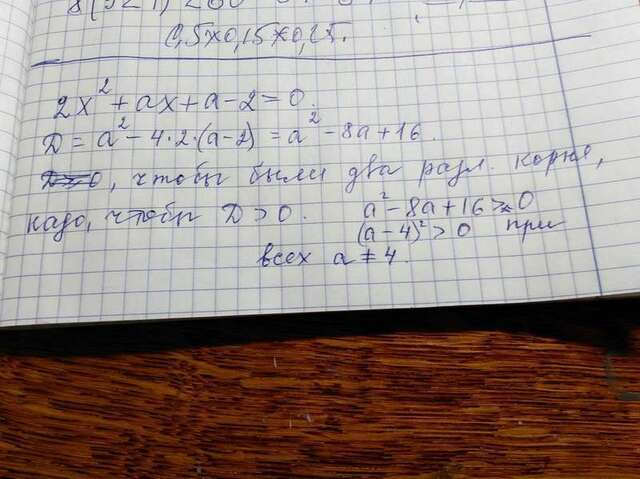 0,5×0,15×0,25.
2x² + ax + a - 2 = 0.
D = a² - 4·2·(a-2) = a² - 8a + 16.
чтобы были два разл. корня,
надо, чтобы D > 0. a² - 8a + 16 > 0
(a-4)² > 0 при
всех a ≠ 4.